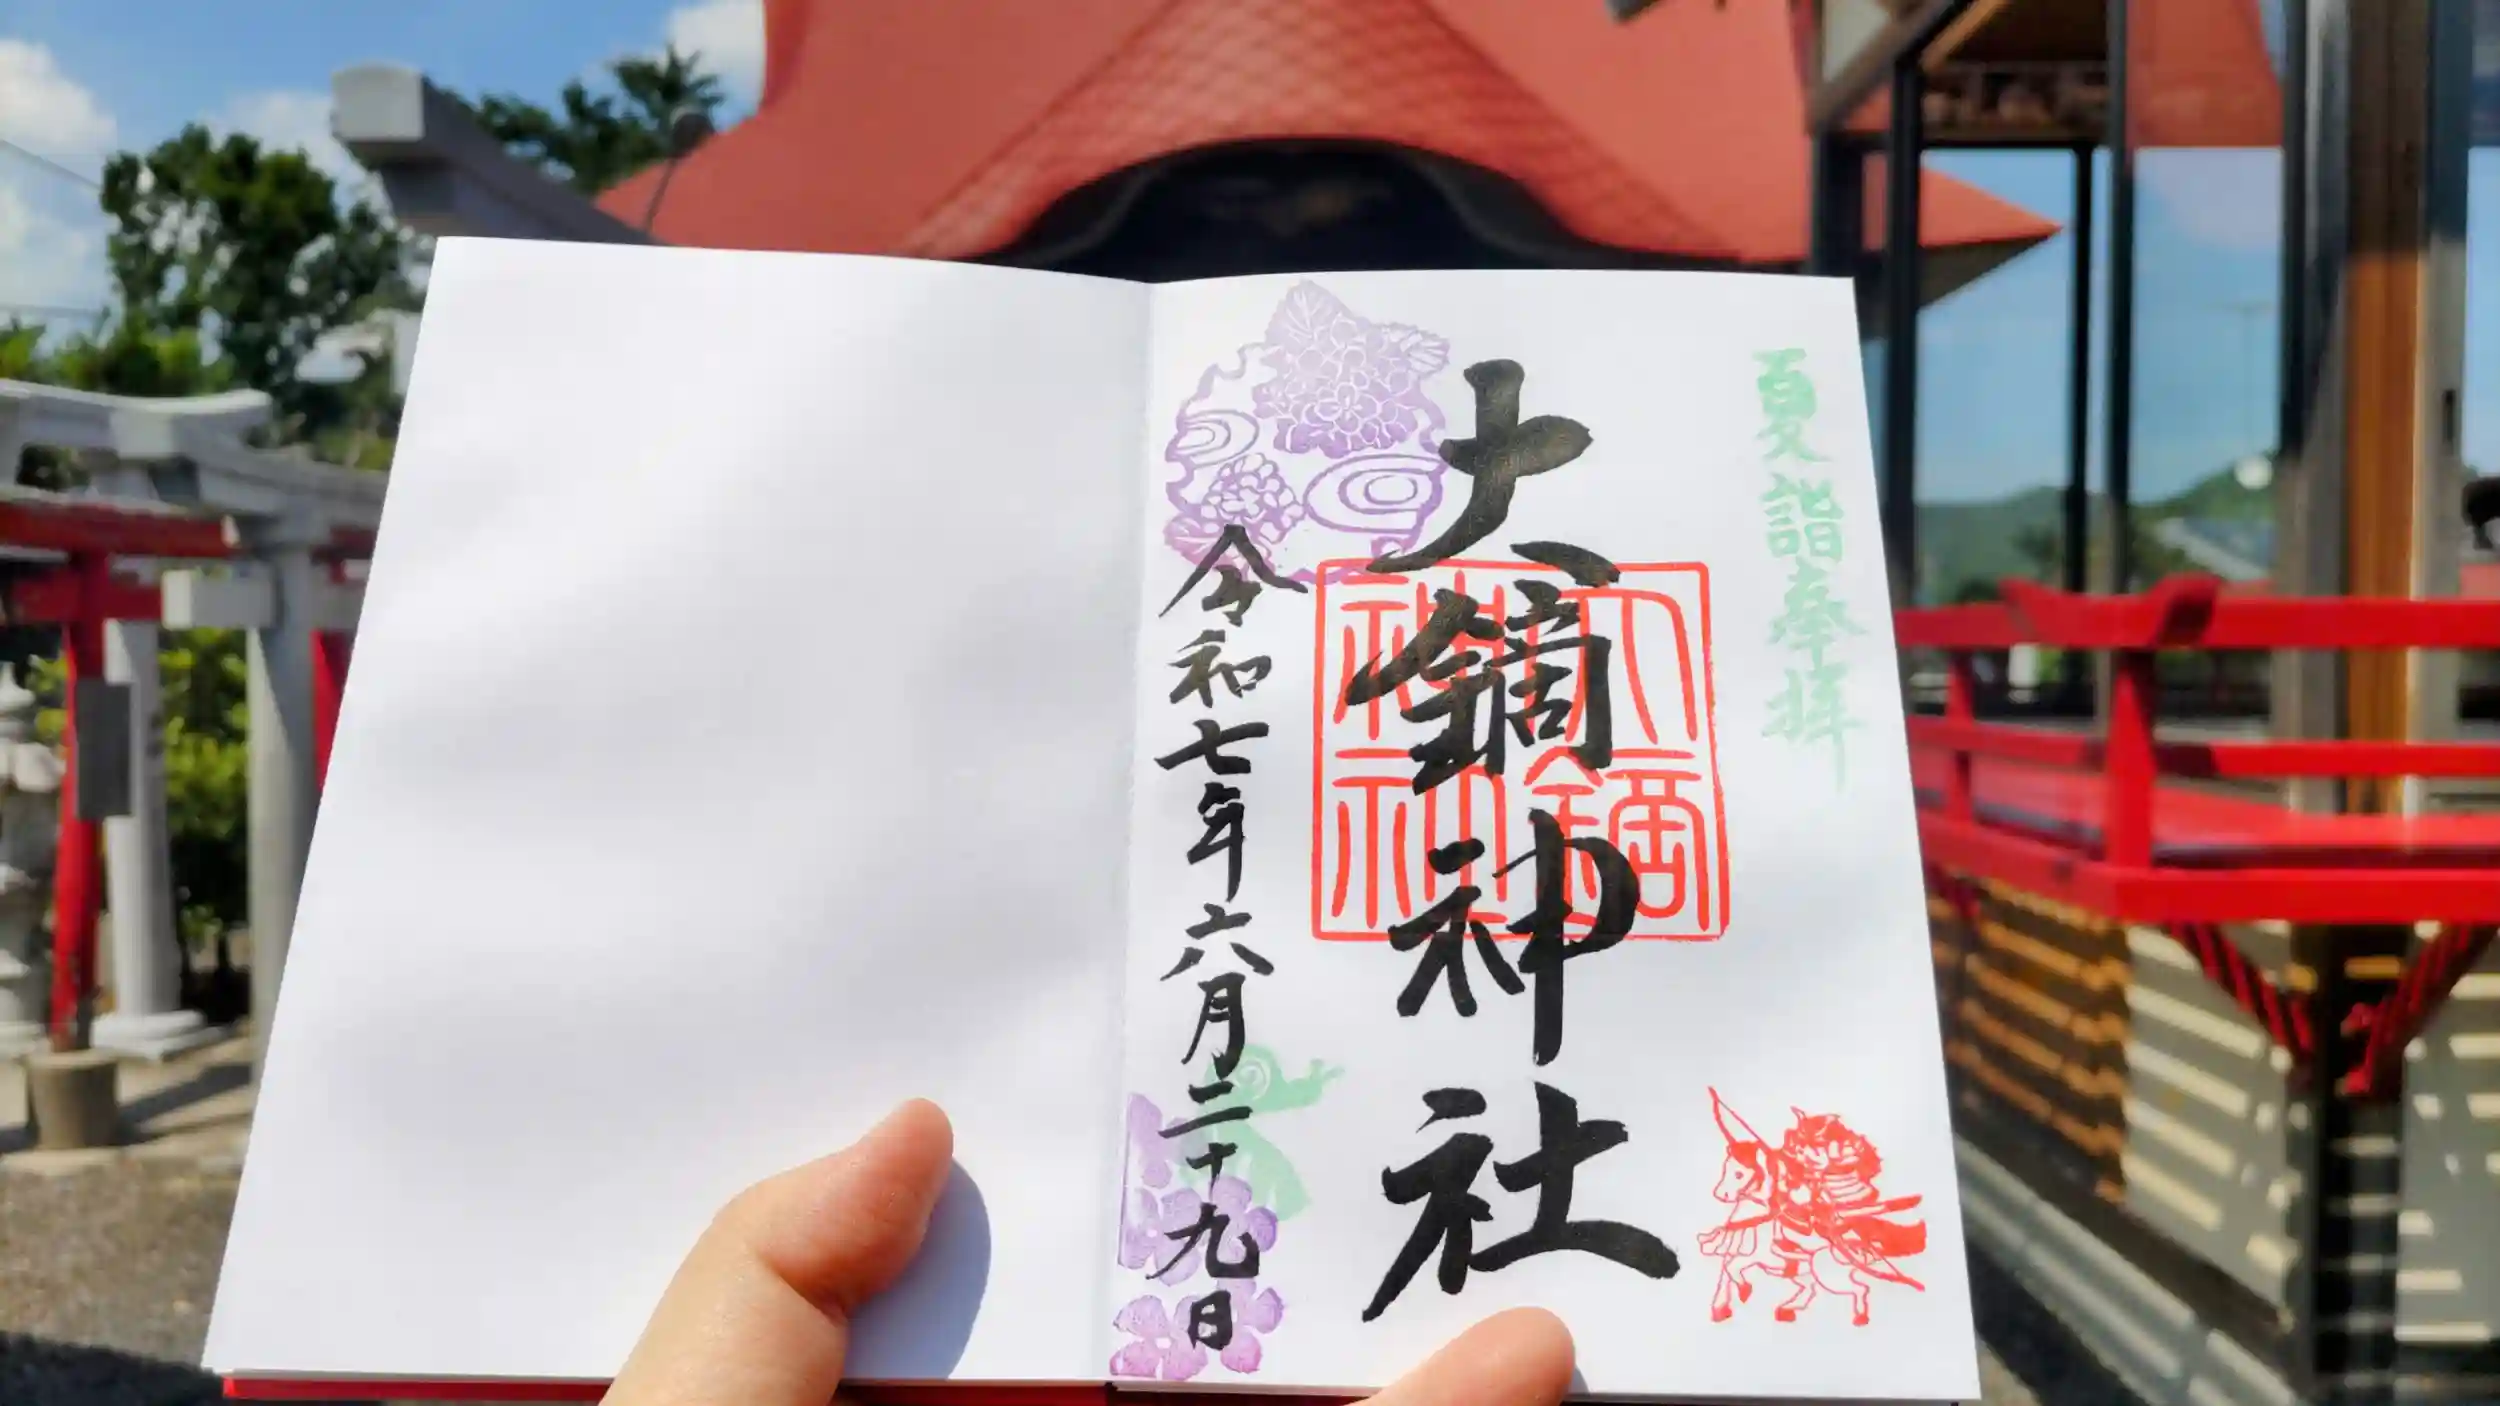 夏詣奉拝
大鏑神社
大鏑神社
令和七年六月二十九日